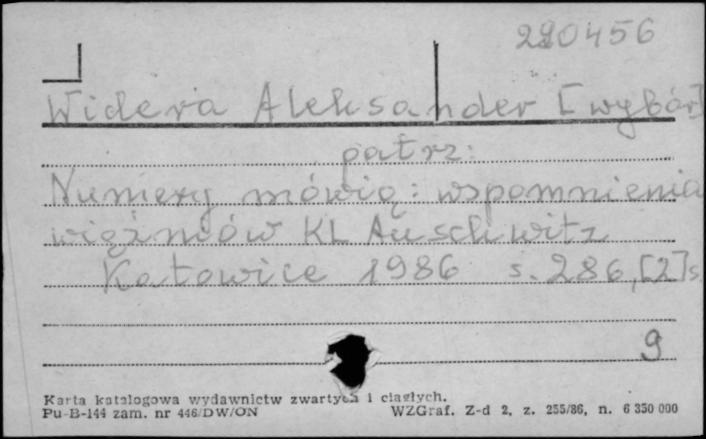 290456
Widera Aleksander [wybór]
patrz:
Numery mówią: wspomnienia
więźniów KL Auschwitz
Katowice 1986 s. 286, [2] s.
9
Karta katalogowa wydawnictw zwartych i ciągłych.
Pu-B-144 zam. nr 446/DW/ON WZGraf. Z-d 2, z. 255/86, n. 6 350 000